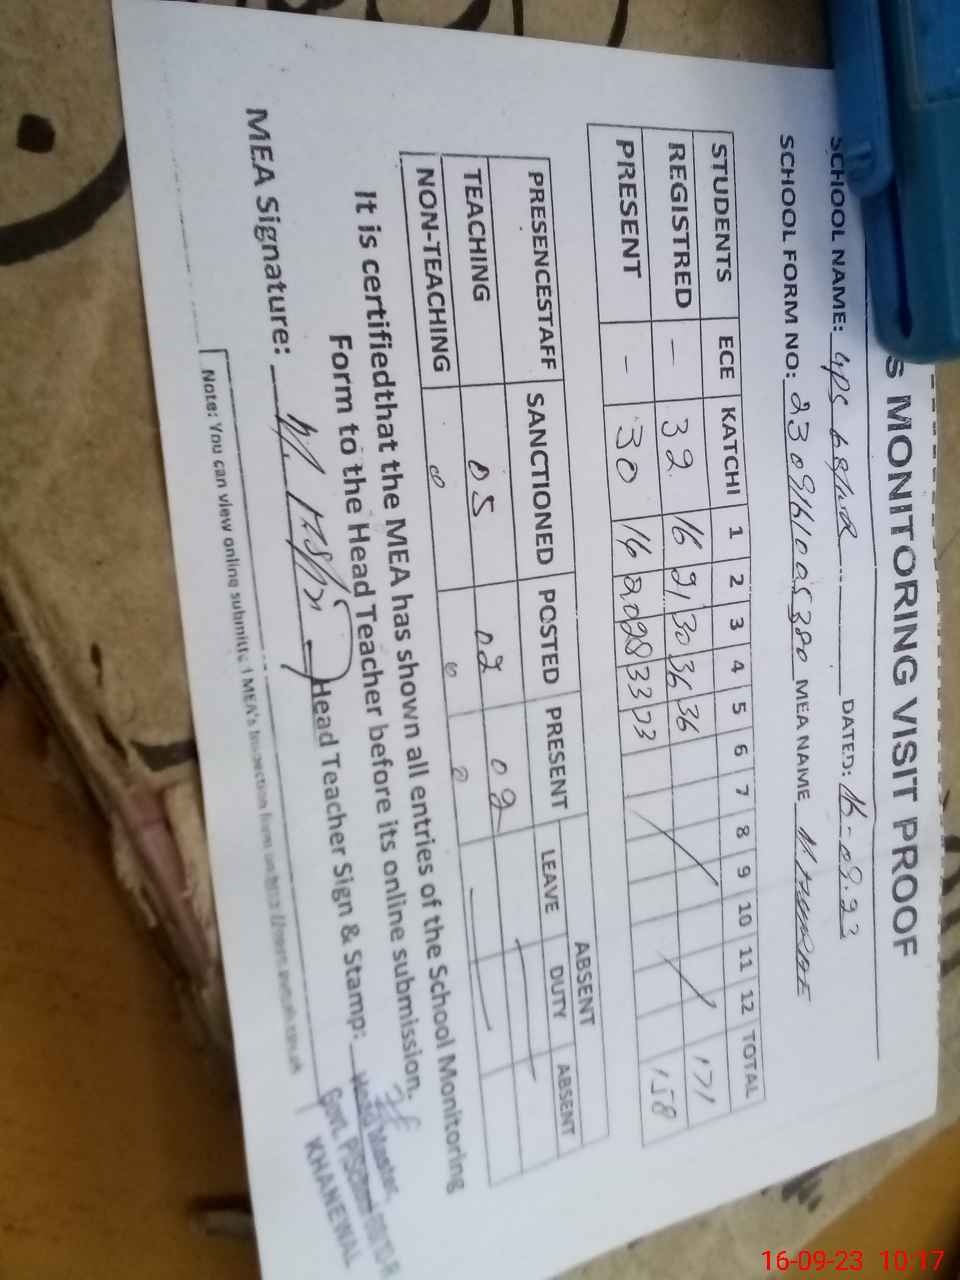 S MONITORING VISIT PROOF
SCHOOL NAME: DATED: 16-09-23
SCHOOL FORM NO: MEA NAME
STUDENTS ECE KATCHI 1 2 3 4 5 6 7 8 9 10 11 12 TOTAL
REGISTRED - 32 16 21 30 36 36 171
PRESENT - 30 14 20 28 33 33 158
ABSENT
PRESENCESTAFF SANCTIONED POSTED PRESENT LEAVE DUTY ABSENT
TEACHING 05 02 02
NON-TEACHING 0 0 0
It is certifiedthat the MEA has shown all entries of the School Monitoring
Form to the Head Teacher before its online submission.
MEA Signature: Head Teacher Sign & Stamp:
Head Master,
Govt.
KHANEWAL
Note: You can view online submitted MEA's Inspection form on
16-09-23 10:17